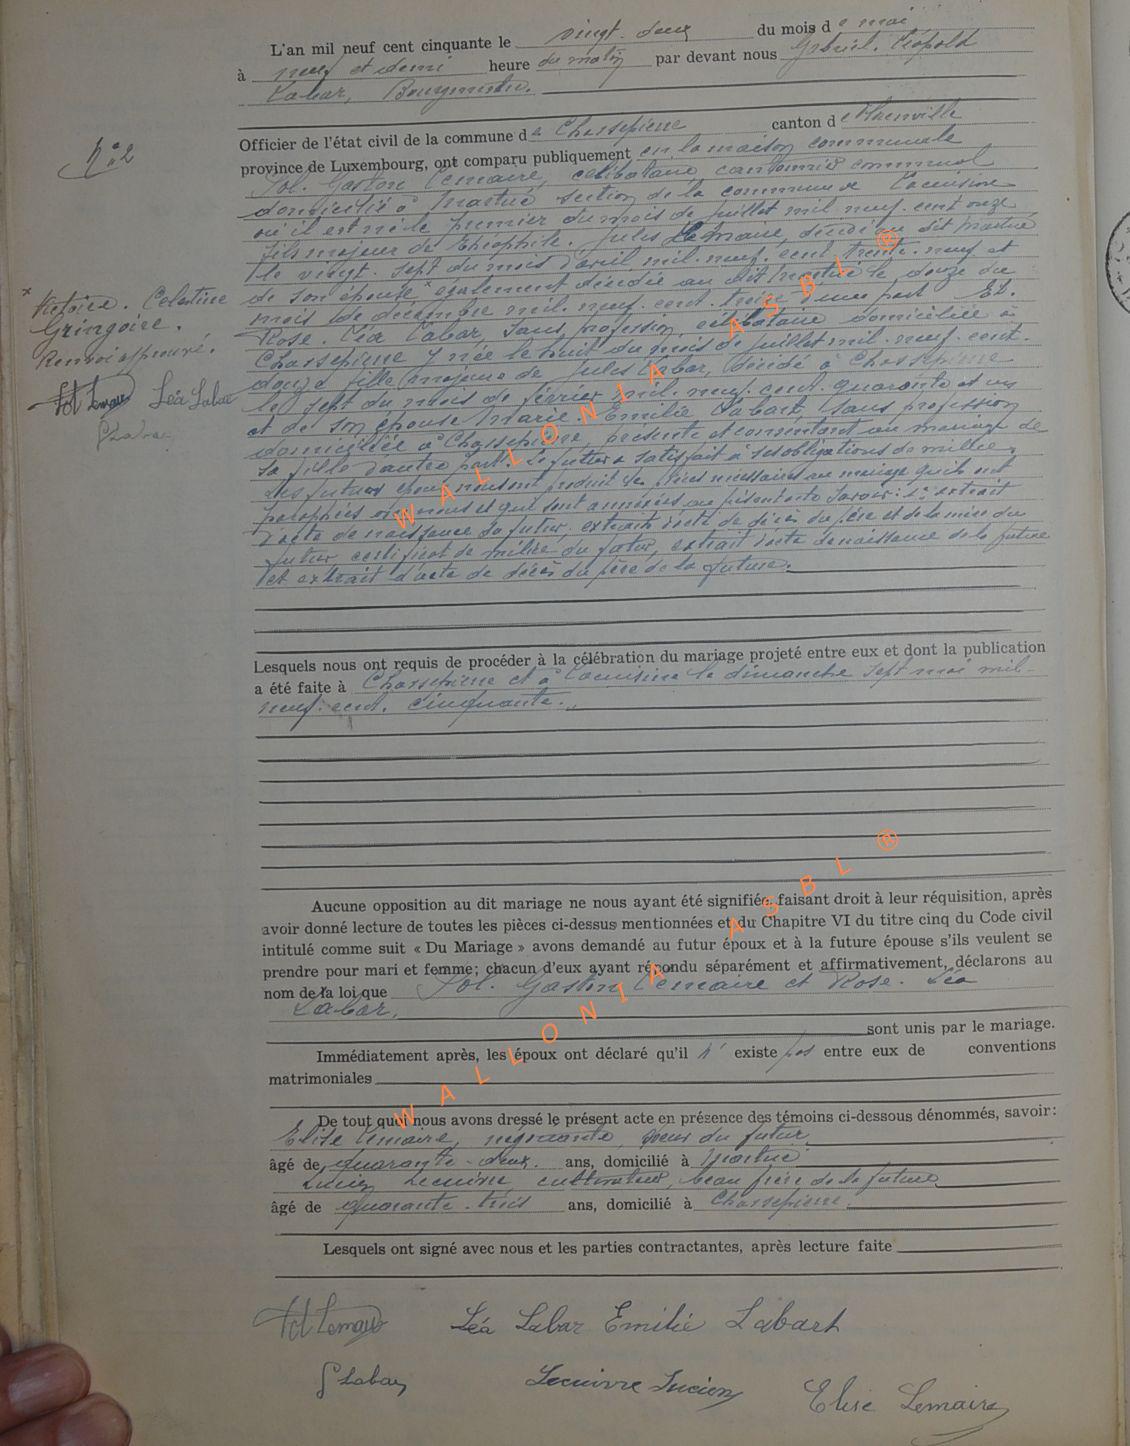 L'an mil neuf cent cinquante le vingt-deux du mois de mai
à neuf et demi heure du matin par devant nous Léopold
Labar, Bourgmestre.
Officier de l'état civil de la commune de Chassepierre canton de Florenville
province de Luxembourg, ont comparu publiquement en la maison communale
N° 2
Pol. Gaston Lemaire, célibataire, cantonnier communal
domicilié à Martué section de la commune de Lacuisine
où il est né le premier du mois de juillet mil neuf cent onze
fils majeur de Théophile. Jules Lemaire, décédé au dit Martué
le vingt-sept du mois d'avril mil neuf cent trente-neuf et
de son épouse × également décédée au dit Martué le douze du
mois de décembre mil neuf cent treize d'une part Et.
Rose. Léa Labar, sans profession célibataire domiciliée à
Chassepierre y née le huit du mois de juillet mil neuf cent
douze fille majeure de Jules Labar, décédé à Chassepierre
le sept du mois de février mil neuf cent quarante et un
et de son épouse Marie. Emilie Labart, sans profession
domiciliée à Chassepierre, présente et consentant au mariage de
sa fille d'autre part. Le futur a satisfait à ses obligations de milice.
Les futurs époux nous ont produit les pièces nécessaires au mariage qu'ils ont
paraphées avec nous et qui sont annexées au présent acte savoir: 1° extrait
d'acte de naissance du futur, extraits d'acte de décès du père et de la mère du
futur, certificat de milice du futur, extrait d'acte de naissance de la future
et extrait d'acte de décès du père de la future.
× Victoire. Célestine
Gringoire.
Renvoi approuvé.
Pol Lemaire Léa Labar
Labar
Lesquels nous ont requis de procéder à la célébration du mariage projeté entre eux et dont la publication
a été faite à Chassepierre et à Lacuisine le dimanche sept mai mil
neuf cent cinquante.
Aucune opposition au dit mariage ne nous ayant été signifiée, faisant droit à leur réquisition, après
avoir donné lecture de toutes les pièces ci-dessus mentionnées et du Chapitre VI du titre cinq du Code civil
intitulé comme suit « Du Mariage » avons demandé au futur époux et à la future épouse s'ils veulent se
prendre pour mari et femme; chacun d'eux ayant répondu séparément et affirmativement, déclarons au
nom de la loi que Pol. Gaston Lemaire et Rose. Léa
Labar,
sont unis par le mariage.
Immédiatement après, les époux ont déclaré qu'il n' existe pas entre eux de conventions
matrimoniales
De tout quoi nous avons dressé le présent acte en présence des témoins ci-dessous dénommés, savoir:
Elise Lemaire, négociante, soeur du futur
âgé de quarante-deux ans, domicilié à Martué
Lucien Lecuivre, cultivateur, beau frère de la future
âgé de quarante-trois ans, domicilié à Chassepierre.
Lesquels ont signé avec nous et les parties contractantes, après lecture faite
Pol Lemaire Léa Labar Emilie Labart
Labar Lecuivre Lucien Elise Lemaire
WALLONIA ASBL ®
WALLONIA ASBL ®